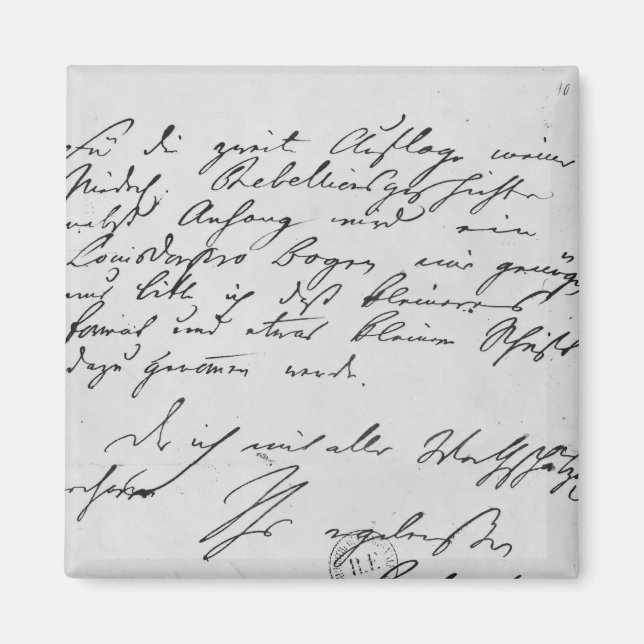 10
Für die zweite Auflage meiner
Niederl. Rebellionsgeschichte
nebst Anhang wird ein
Louisdor pro Bogen mir genüg
nur bitte ich daß kleineres
Format und etwas kleinere Schrift
dazu genommen werde.
Der ich mit aller Werthschätzu
Ihr ergebenster
R.F.